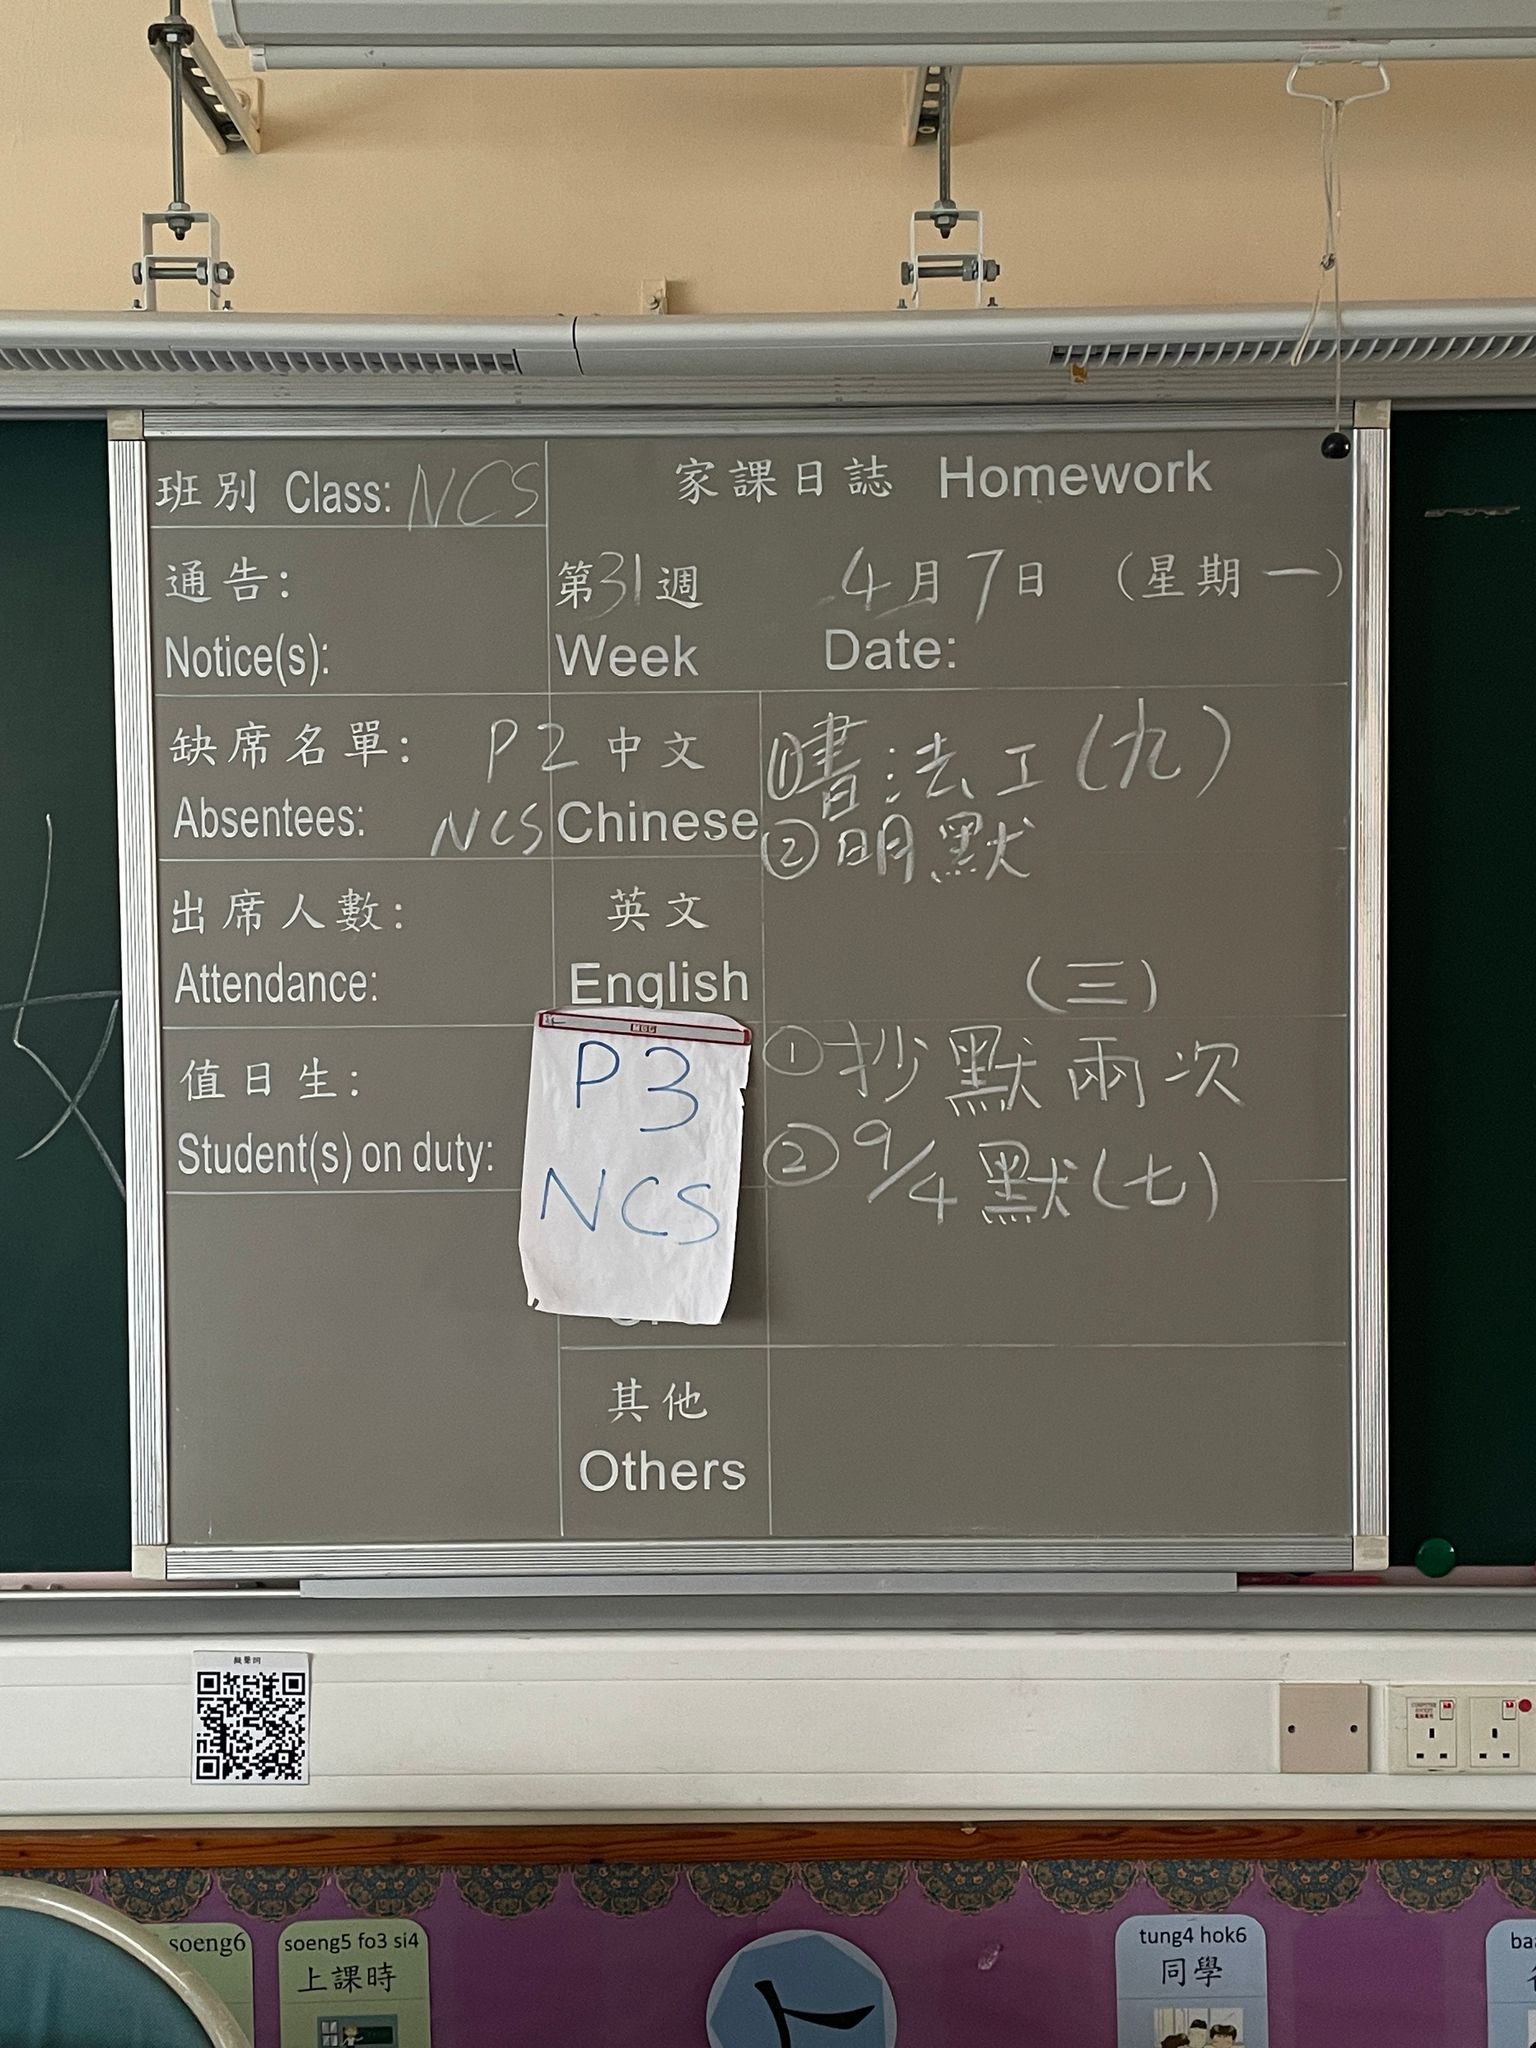 班別 Class: NCS
家課日誌 Homework
通告:
Notice(s):
第31週 4月7日 (星期一)
Week Date:
缺席名單:
Absentees:
P2
NCS
中文
Chinese
①書法工(九)
②明默
出席人數:
Attendance:
英文
English
(三)
值日生:
Student(s) on duty:
P3
NCS
①抄默兩次
②9/4默(七)
其他
Others
擬聲詞
soeng6
soeng5 fo3 si4
上課時
tung4 hok6
同學